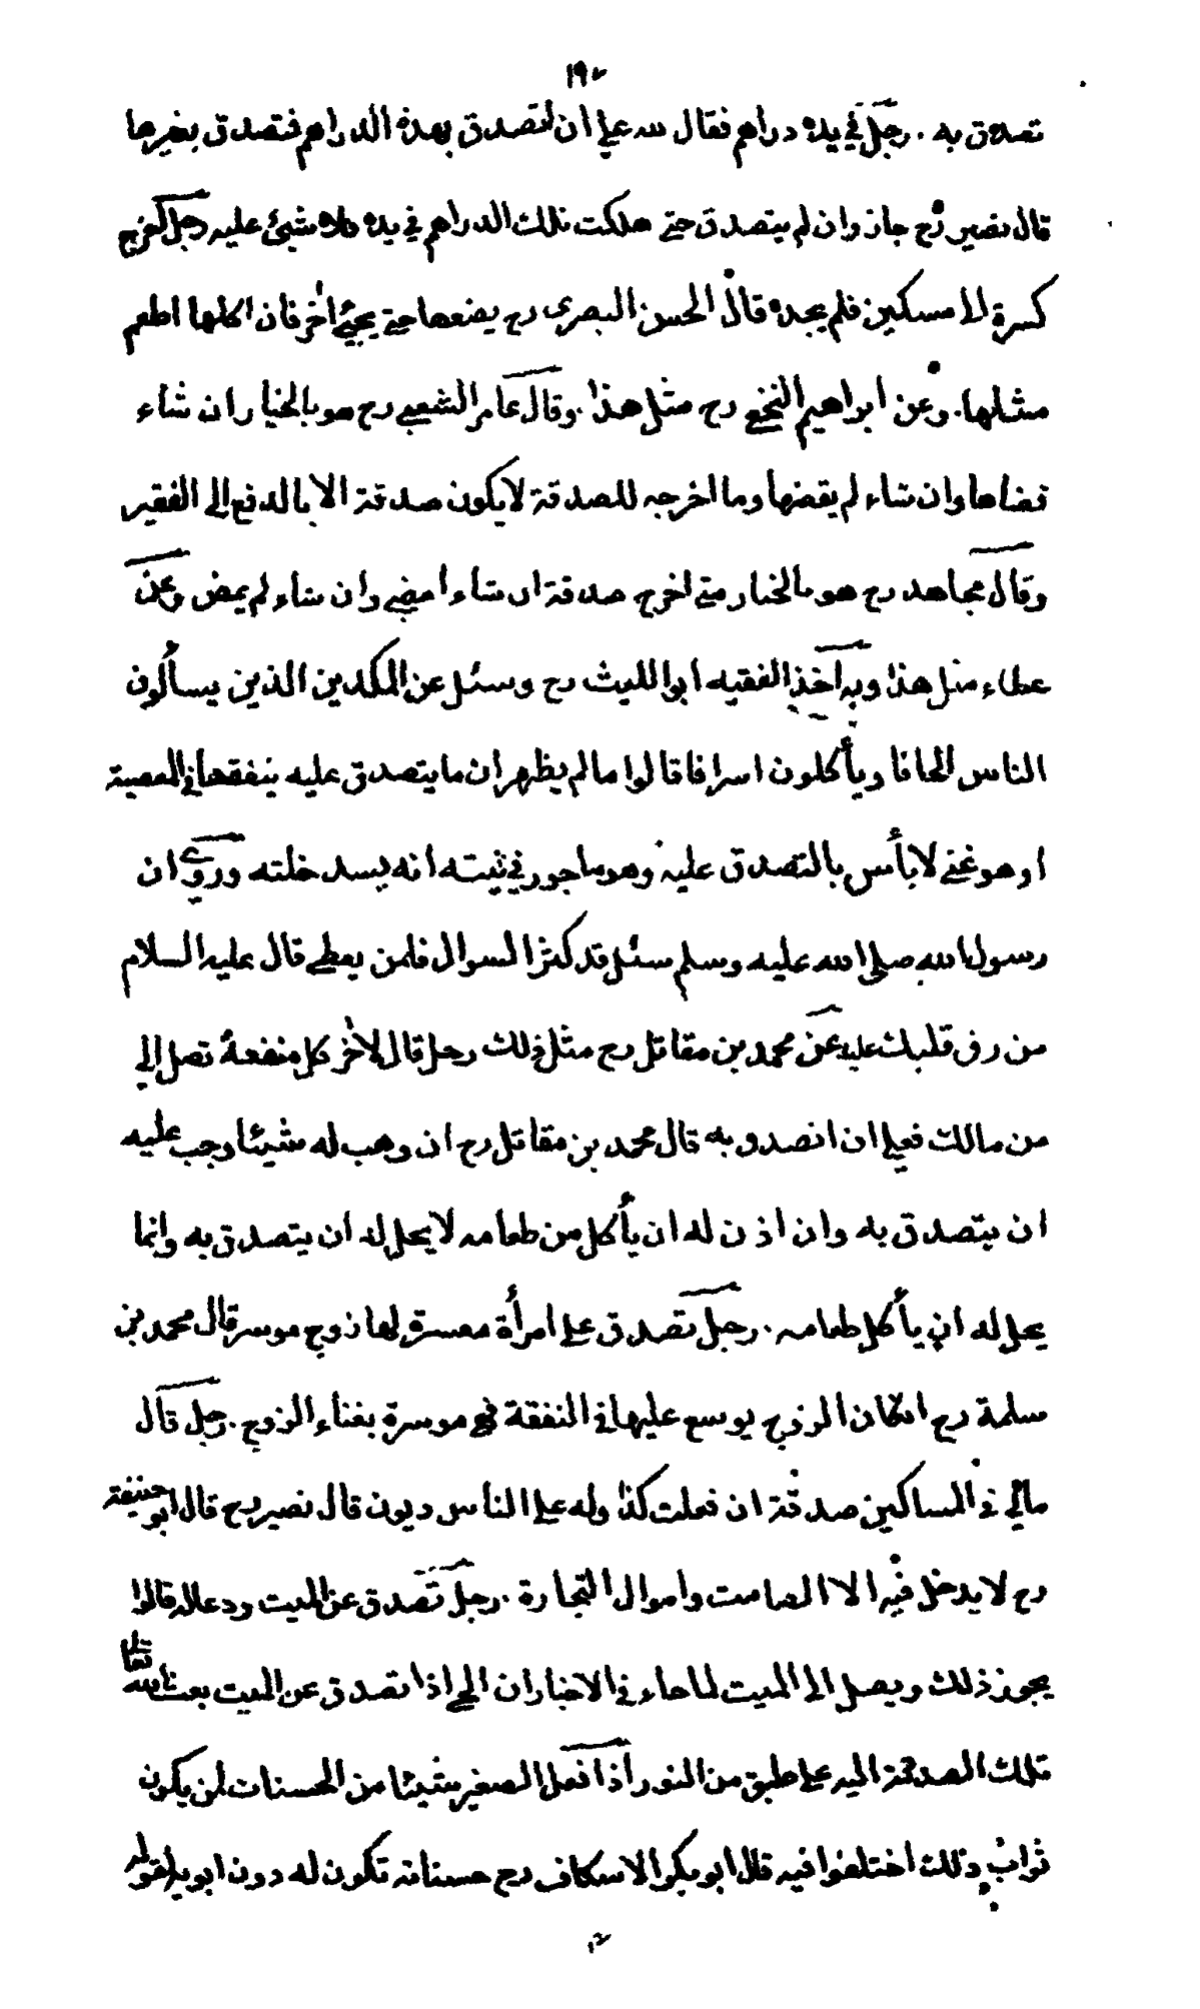 ١٩٢
تصدق به . رجل في يده دراهم فقال لله علي ان اتصدق بهذه الدراهم فتصدق بغيرها
قال نصير رح جاز وان لم يتصدق حتى هلكت تلك الدراهم في يده فلا شيئ عليه رجل اخرج
كسرة الى مسكين فلم يجده قال الحسن البصري رح يضعها حتى يجيئ اخر فان اكلها اطعم
مثلها . وعن ابراهيم النخعي رح مثل هذا . وقال عامر الشعبي رح هو بالخيار ان شاء
قضاها وان شاء لم يقضها وما اخرجه للصدقة لا يكون صدقة الا بالدفع الى الفقير
وقال مجاهد رح هو بالخيار متى اخرج صدقة ان شاء امضى وان شاء لم يمض وعن
عطاء مثل هذا وبه اخذ الفقيه ابو الليث رح وسئل عن المكدين الذين يسألون
الناس الحافا ويأكلون اسرافا قالوا ما لم يظهر ان ما يتصدق عليه ينفقها في المعصية
او هو غني لا بأس بالتصدق عليه وهو ماجور في نيته انه يسد خلته وروي ان
رسول الله صلى الله عليه وسلم سئل قد كثر السوال فلمن يعطى قال عليه السلام
من رق قلبك عليه عن محمد بن مقاتل رح مثل ذلك رجل قال لاخر كل منفعة تصل الي
من مالك فعلي ان اتصدق به قال محمد بن مقاتل رح ان وهب له شيئا وجب عليه
ان يتصدق به وان اذن له ان يأكل من طعامه لا يحل له ان يتصدق به وانما
يحل له ان يأكل طعامه . رجل تصدق على امرأة معسرة لها زوج موسر قال محمد بن
سلمة رح ان كان الزوج يوسع عليها في النفقة فهي موسرة بغناء الزوج . رجل قال
مالي في المساكين صدقة ان فعلت كذا وله على الناس ديون قال نصير رح قال ابو حنيفة
رح لا يدخل فيه الا الصامت واموال التجارة . رجل تصدق عن الميت ودعا له قالوا
يجوز ذلك ويصل الى الميت لما جاء في الاخبار ان الحي اذا تصدق عن الميت بعث الله تعالى
تلك الصدقة اليه على طبق من النور اذا فعل الصغير شيئا من الحسنات لمن يكون
ثواب ذلك اختلفوا فيه قال ابو بكر الاسكاف رح حسناته تكون له دون ابويه لقوله